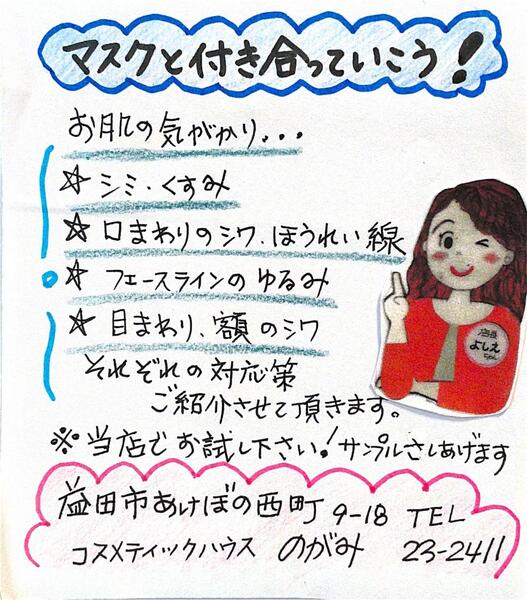 マスクと付き合っていこう!
お肌の気がかり...
☆ シミ・くすみ
☆ 口まわりのシワ、ほうれい線
☆ フェースラインのゆるみ
☆ 目まわり、額のシワ
それぞれの対応策
ご紹介させて頂きます。
※当店でお試し下さい!サンプルさしあげます
店長
よしえ
ちゃん
益田市あけぼの西町 9-18 TEL
コスメティックハウス のがみ 23-2411